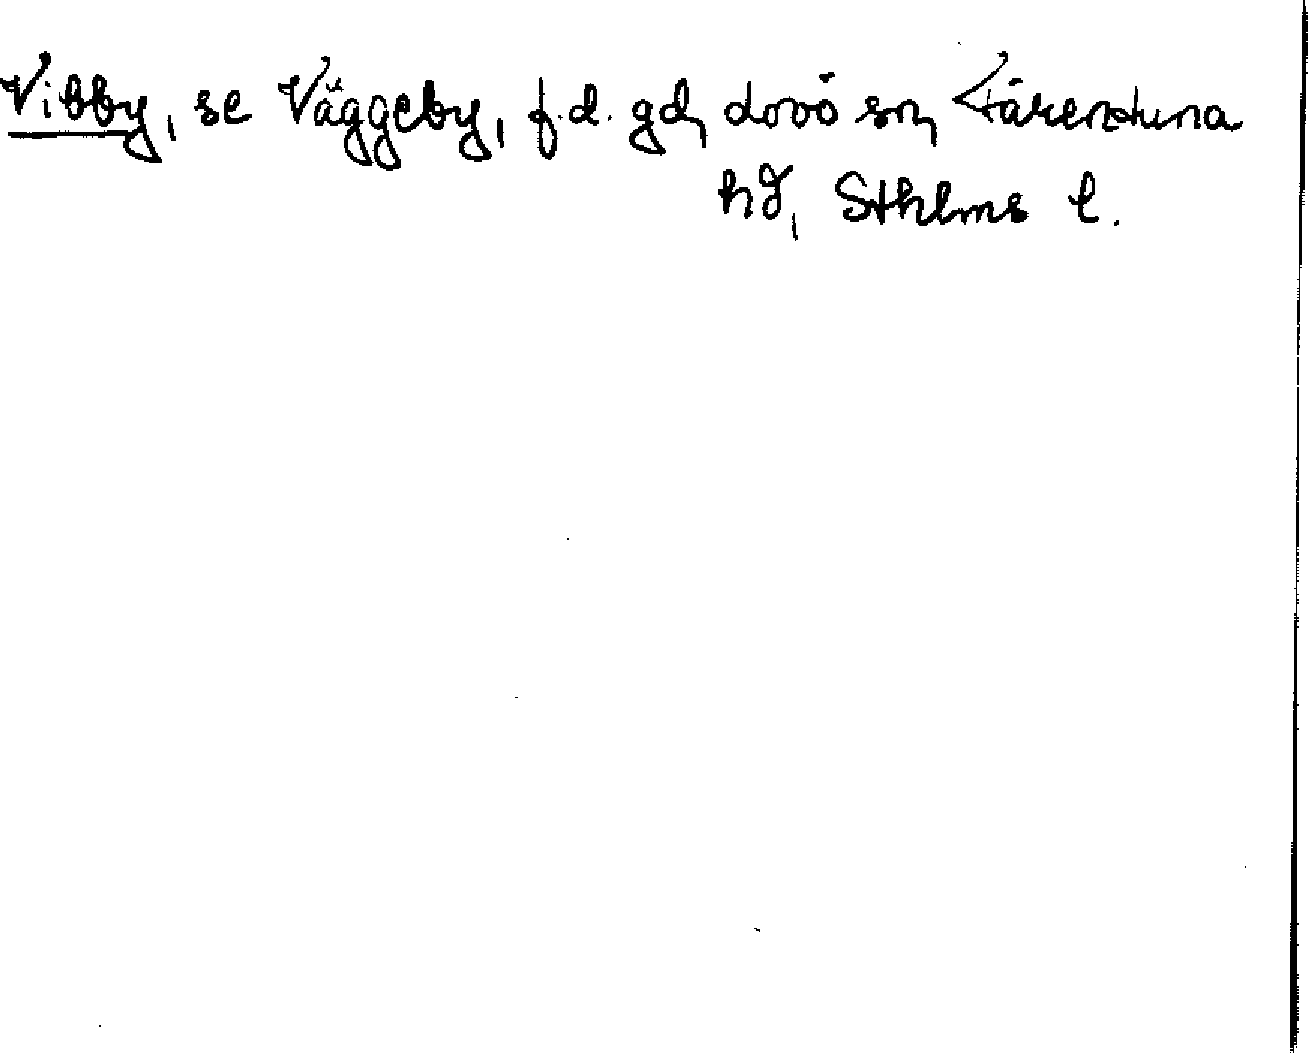 Vibby, se Väggeby, f.d. gd, Lovö sn, Färentuna
hd, Sthlms l.